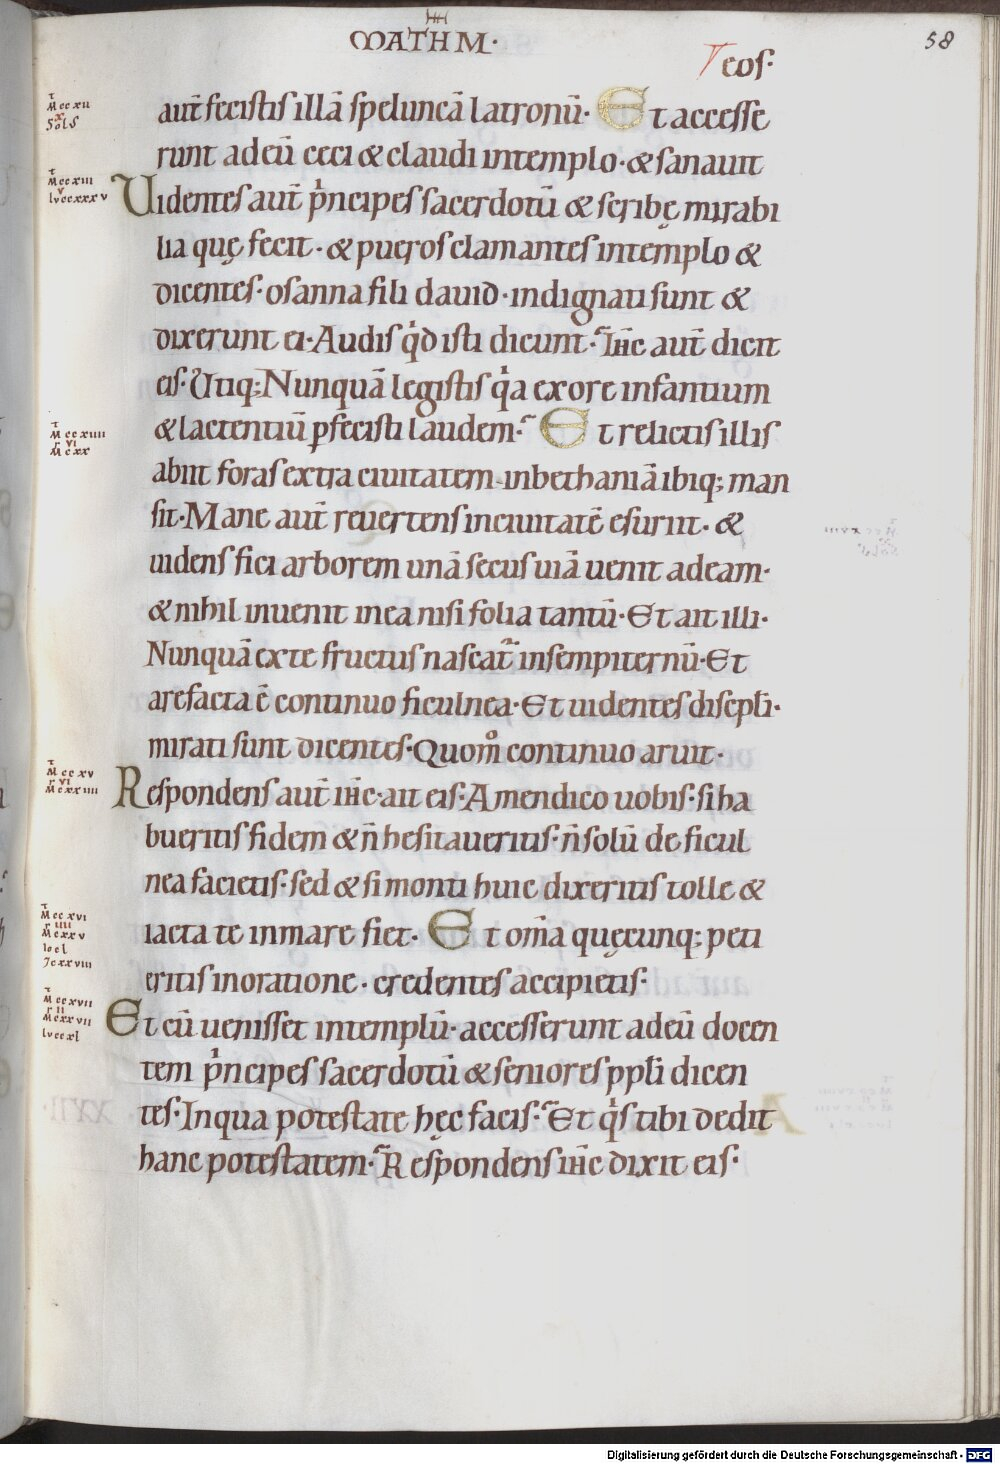 MATHM·
58
eos·
aut̄ fecistis illā speluncā latronū· Et accesse
runt ad eū ceci & claudi in templo· & sanauit
Uidentes aut̄ pͥncipes sacerdotū & scribę mirabi
lia quę fecit· & pueros clamantes in templo &
dicentes· osanna fili dauid· indignati sunt &
dixerunt ei· Audis qͥd isti dicunt· Ih̄c aut̄ dicit
eis· Utiq; Nunquā legistis qͥa ex ore infantium
& lactentiū ꝑfecisti laudem· Et relictis illis
abiit foras extra ciuitatem in bethaniā ibiq; man
sit· Mane aut̄ reuertens in ciuitatē esuriit· &
uidens fici arborem unā secus uiā uenit ad eam·
& nihil inuenit in ea nisi folia tantū· Et ait illi·
Nunquā ex te fructus nascat᷑ in sempiternū· Et
arefacta ē continuo ficulnea· Et uidentes discipl̄i·
mirati sunt dicentes· Quom̊ continuo aruit·
Respondens aut̄ ih̄c· ait eis· Amen dico uobis· si ha
bueritis fidem & n̄ hesitaueritis· n̄ solū de ficul
nea facietis· sed & si monti huic dixeritis tolle &
iacta te in mare fiet· Et om̄a quęcunq; peti
eritis in oratione· credentes accipietis·
Et cū uenisset in templū· accesserunt ad eū docen
tem pͥncipes sacerdotū & seniores ppl̄i dicen
tes· In qua potestate hęc facis· Et qͥs tibi dedit
hanc potestatem· Respondens ih̄c dixit eis·
M ccxii
Sols
M ccxiii
lv ccxxxv
M ccxiiii
M cxx
M ccxv
M cxxiiii
M ccxvi
M cxxv
M ccxvii
M cxxvii
lv ccxl
Digitalisierung gefördert durch die Deutsche Forschungsgemeinschaft - DFG